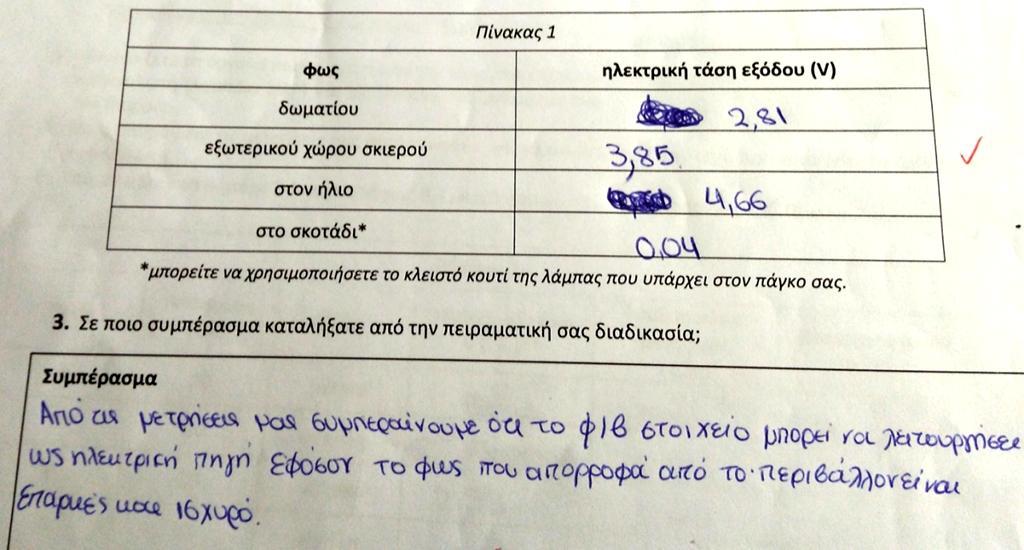 Πίνακας 1
φως ηλεκτρική τάση εξόδου (V)
δωματίου 2,81
εξωτερικού χώρου σκιερού 3,85
στον ήλιο 4,66
στο σκοτάδι* 0,04
*μπορείτε να χρησιμοποιήσετε το κλειστό κουτί της λάμπας που υπάρχει στον πάγκο σας.
3. Σε ποιο συμπέρασμα καταλήξατε από την πειραματική σας διαδικασία;
Συμπέρασμα
Από τις μετρήσεις μας συμπεραίνουμε ότι το φ/β στοιχείο μπορεί να λειτουργήσει
ως ηλεκτρική πηγή εφόσον το φως που απορροφά από το περιβάλλον είναι
επαρκές και ισχυρό.